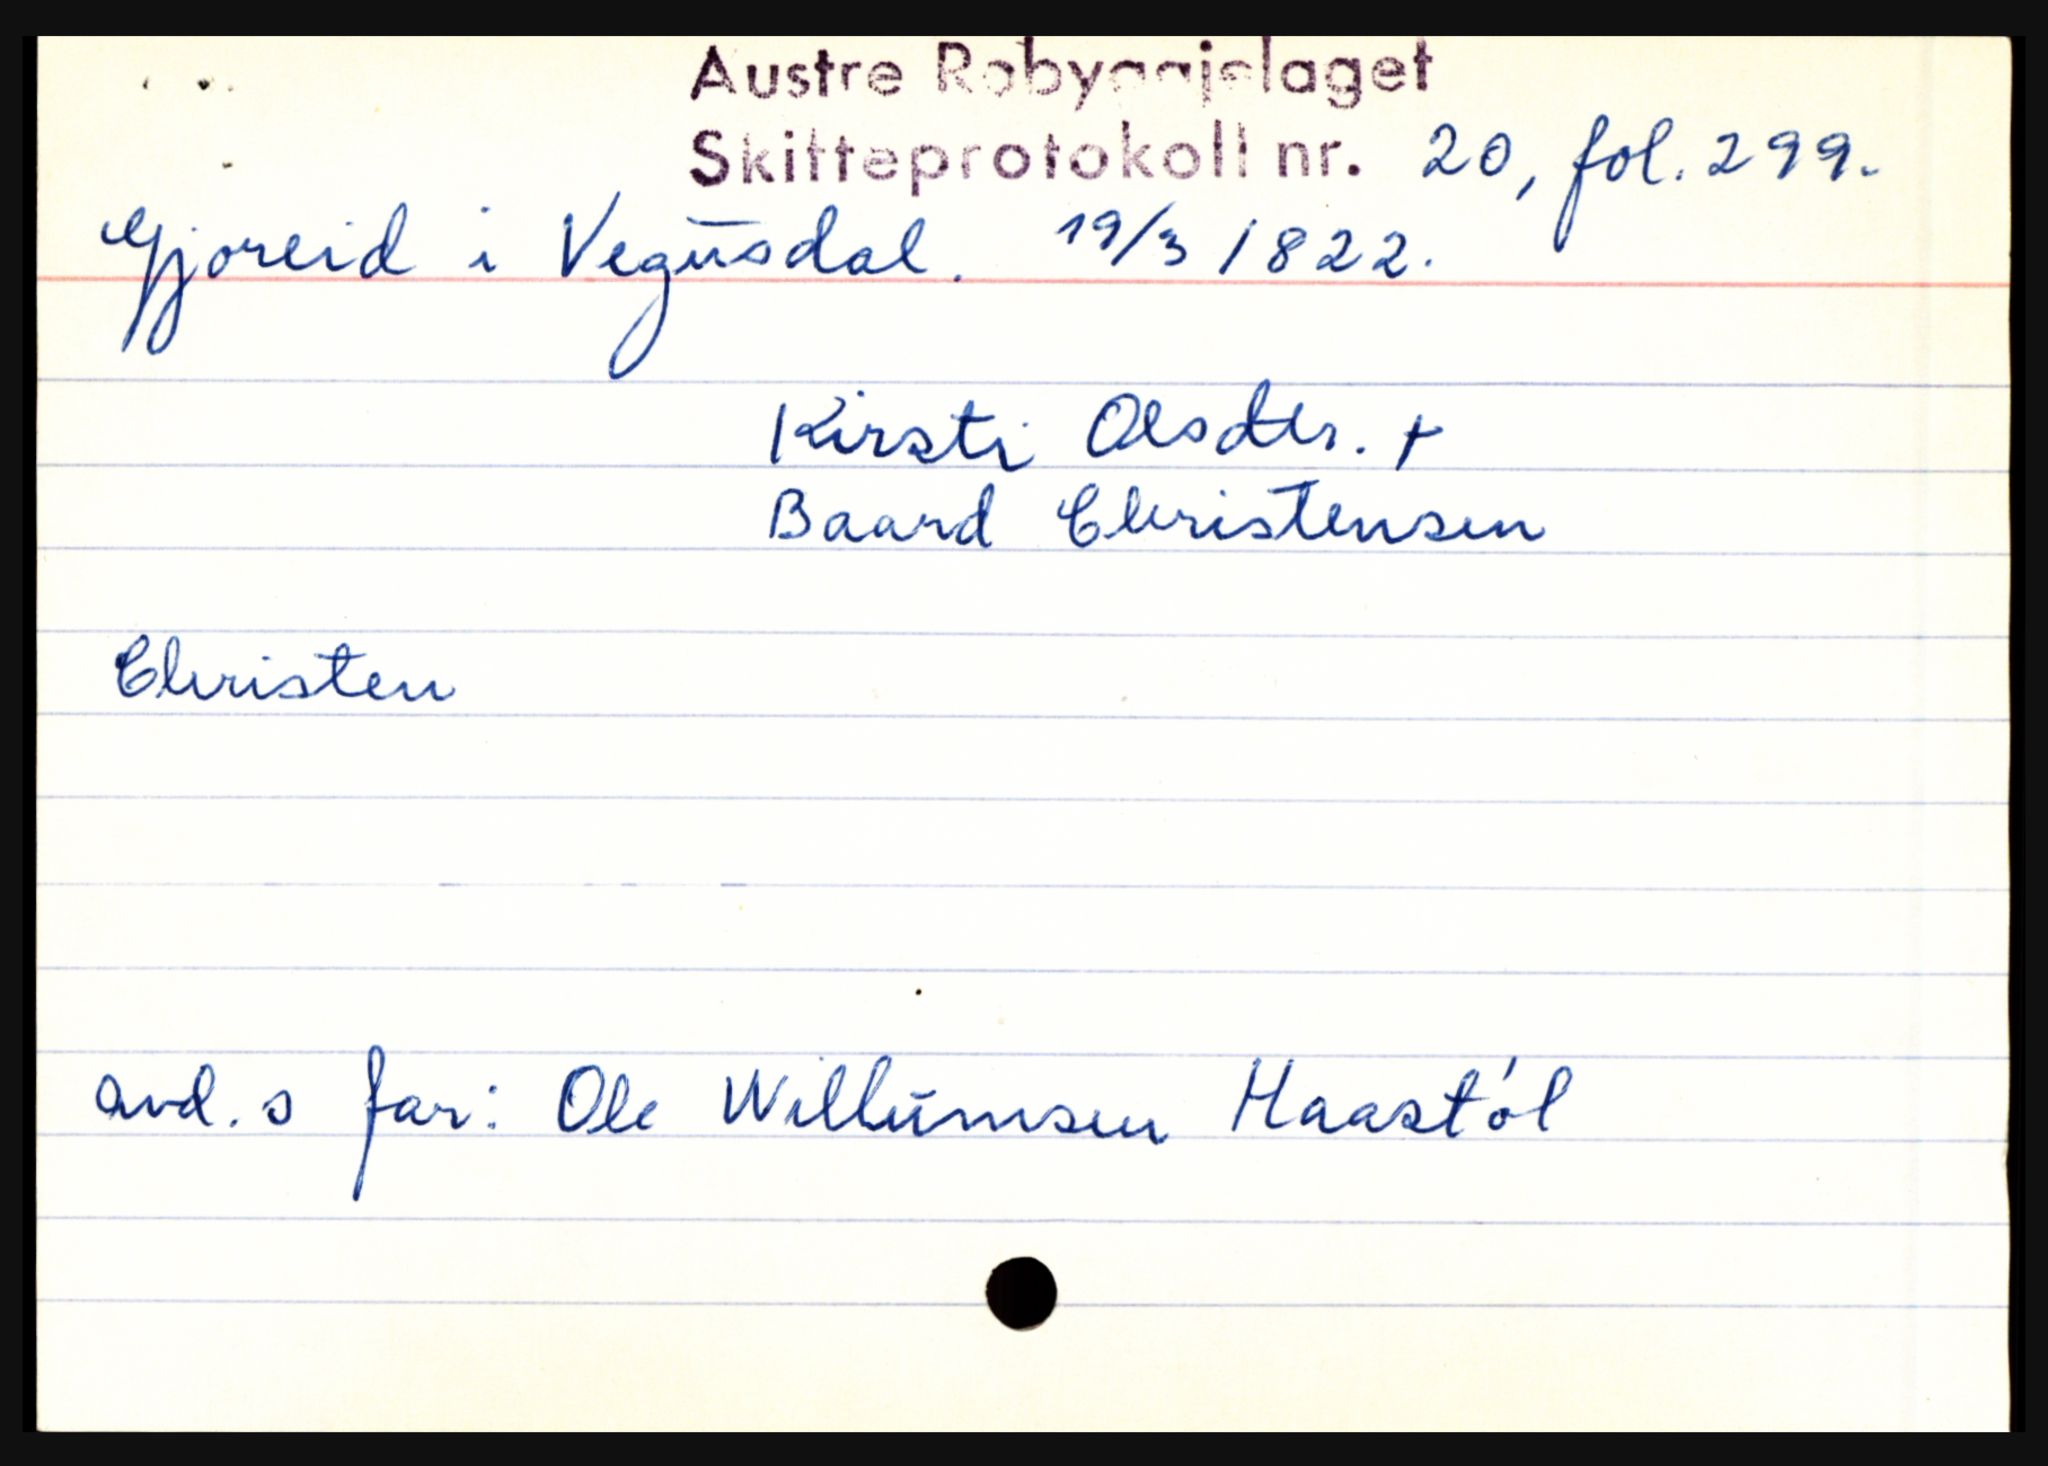 Austre Robyggjelaget
Skifteprotokoll nr. 20, fol. 299.
Gjoreid i Vegusdal. 19/3 1822.
Kirsti Olsdtr. +
Baard Christensen
Christen
avd. s far: Ole Willumsen Haastól